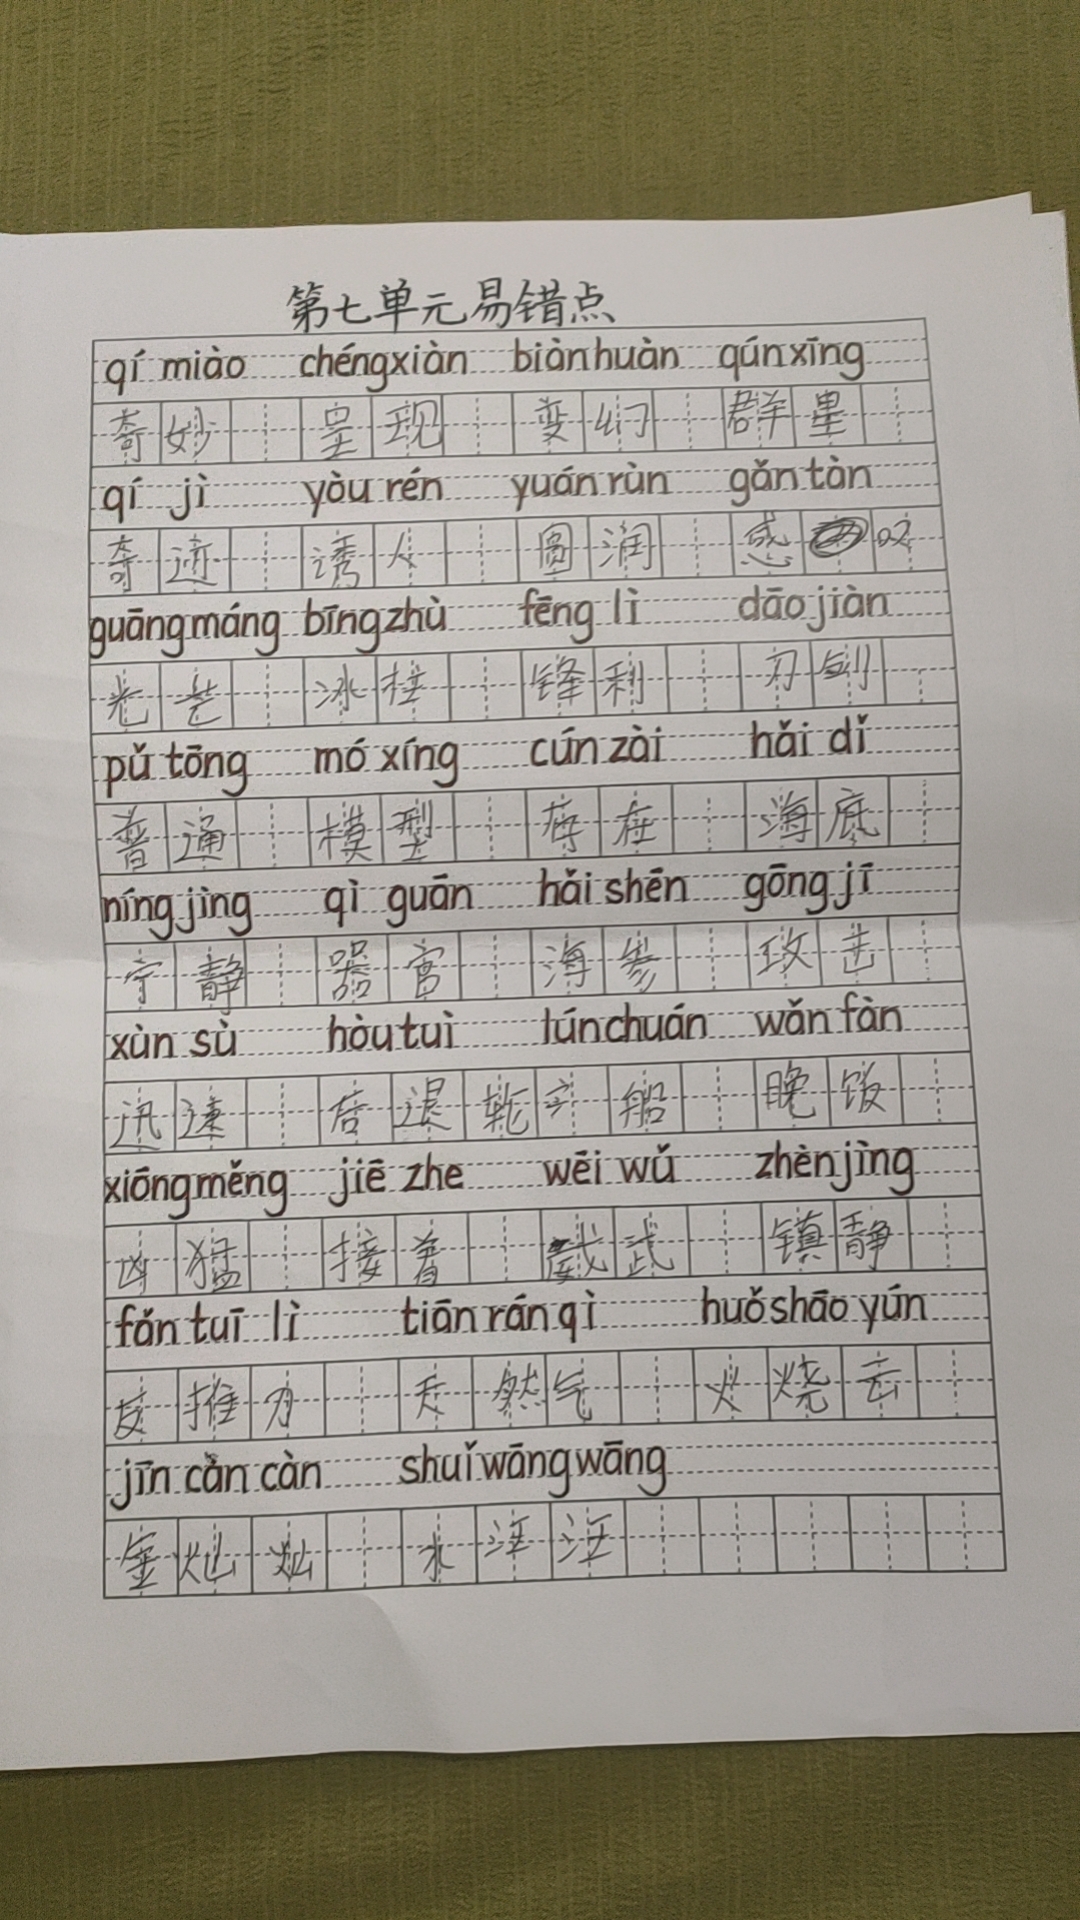 第七单元易错点
qí miào chéngxiàn biànhuàn qúnxīng
奇妙 呈现 变幻 群星
qí jì yòu rén yuán rùn gǎn tàn
奇迹 诱人 圆润 感叹
guāngmáng bīngzhù fēng lì dāo jiàn
光芒 冰柱 锋利 刀剑
pǔ tōng mó xíng cún zài hǎi dǐ
普通 模型 存在 海底
níng jìng qì guān hǎi shēn gōng jī
宁静 器官 海参 攻击
xùn sù hòu tuì lúnchuán wǎn fàn
迅速 后退 船 晚饭
xiōngměng jiē zhe wēi wǔ zhènjìng
凶猛 接着 武 镇静
fǎn tuī lì tiān rán qì huǒshāo yún
反推力 天然气 火烧云
jīn càn càn shuǐwāngwāng
金灿灿 水汪汪